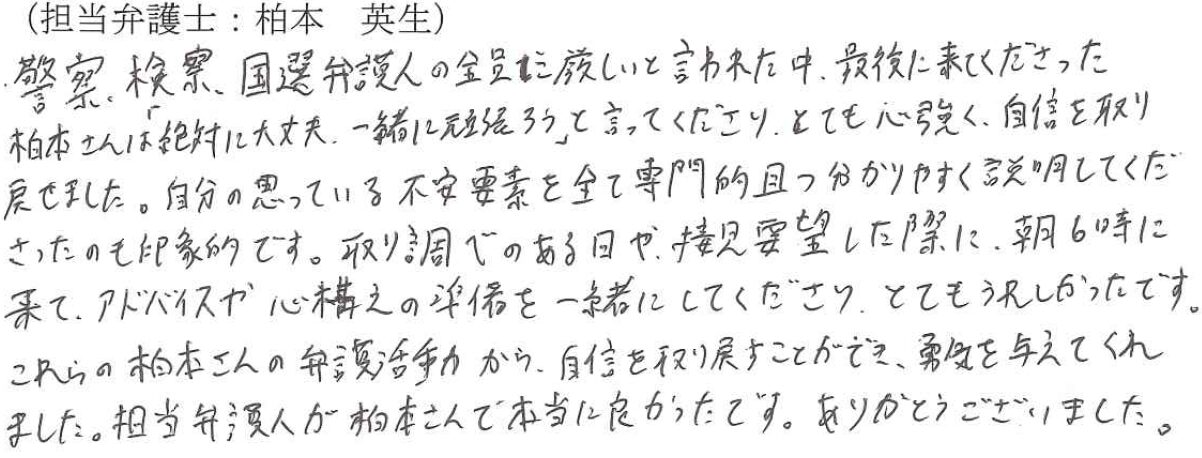 （担当弁護士：柏本　英生）
警察、検察、国選弁護人の全員に厳しいと言われた中、最後に来てくださった
柏本さんは「絶対に大丈夫、一緒に頑張ろう」と言ってくださり、とても心強く、自信を取り
戻せました。自分の思っている不安要素を全て専門的且つ分かりやすく説明してくだ
さったのも印象的です。取り調べのある日や、接見要望した際に、朝6時に
来て、アドバイスや心構えの準備を一緒にしてくださり、とてもうれしかったです。
これらの柏本さんの弁護活動から、自信を取り戻すことができ、勇気を与えてくれ
ました。担当弁護人が柏本さんで本当に良かったです。ありがとうございました。